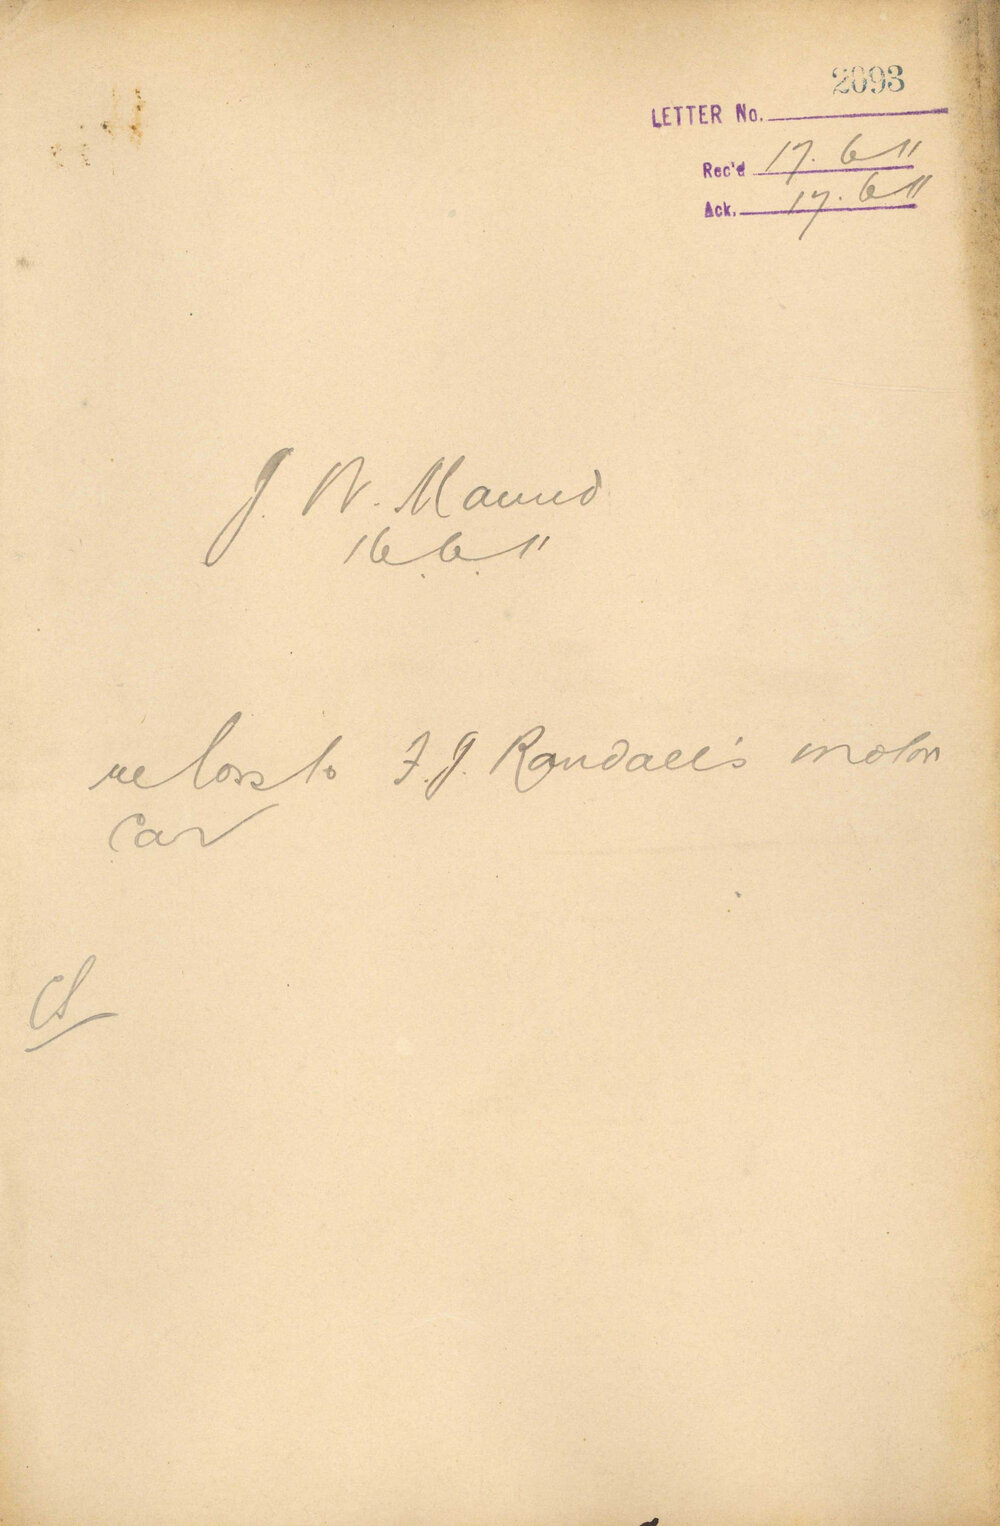 2093
LETTER No.
Rec'd 17.6.11
Ack. 17.6.11
J. W. Maund
16.6.11
re loss to F. J. Randall's motor
Car